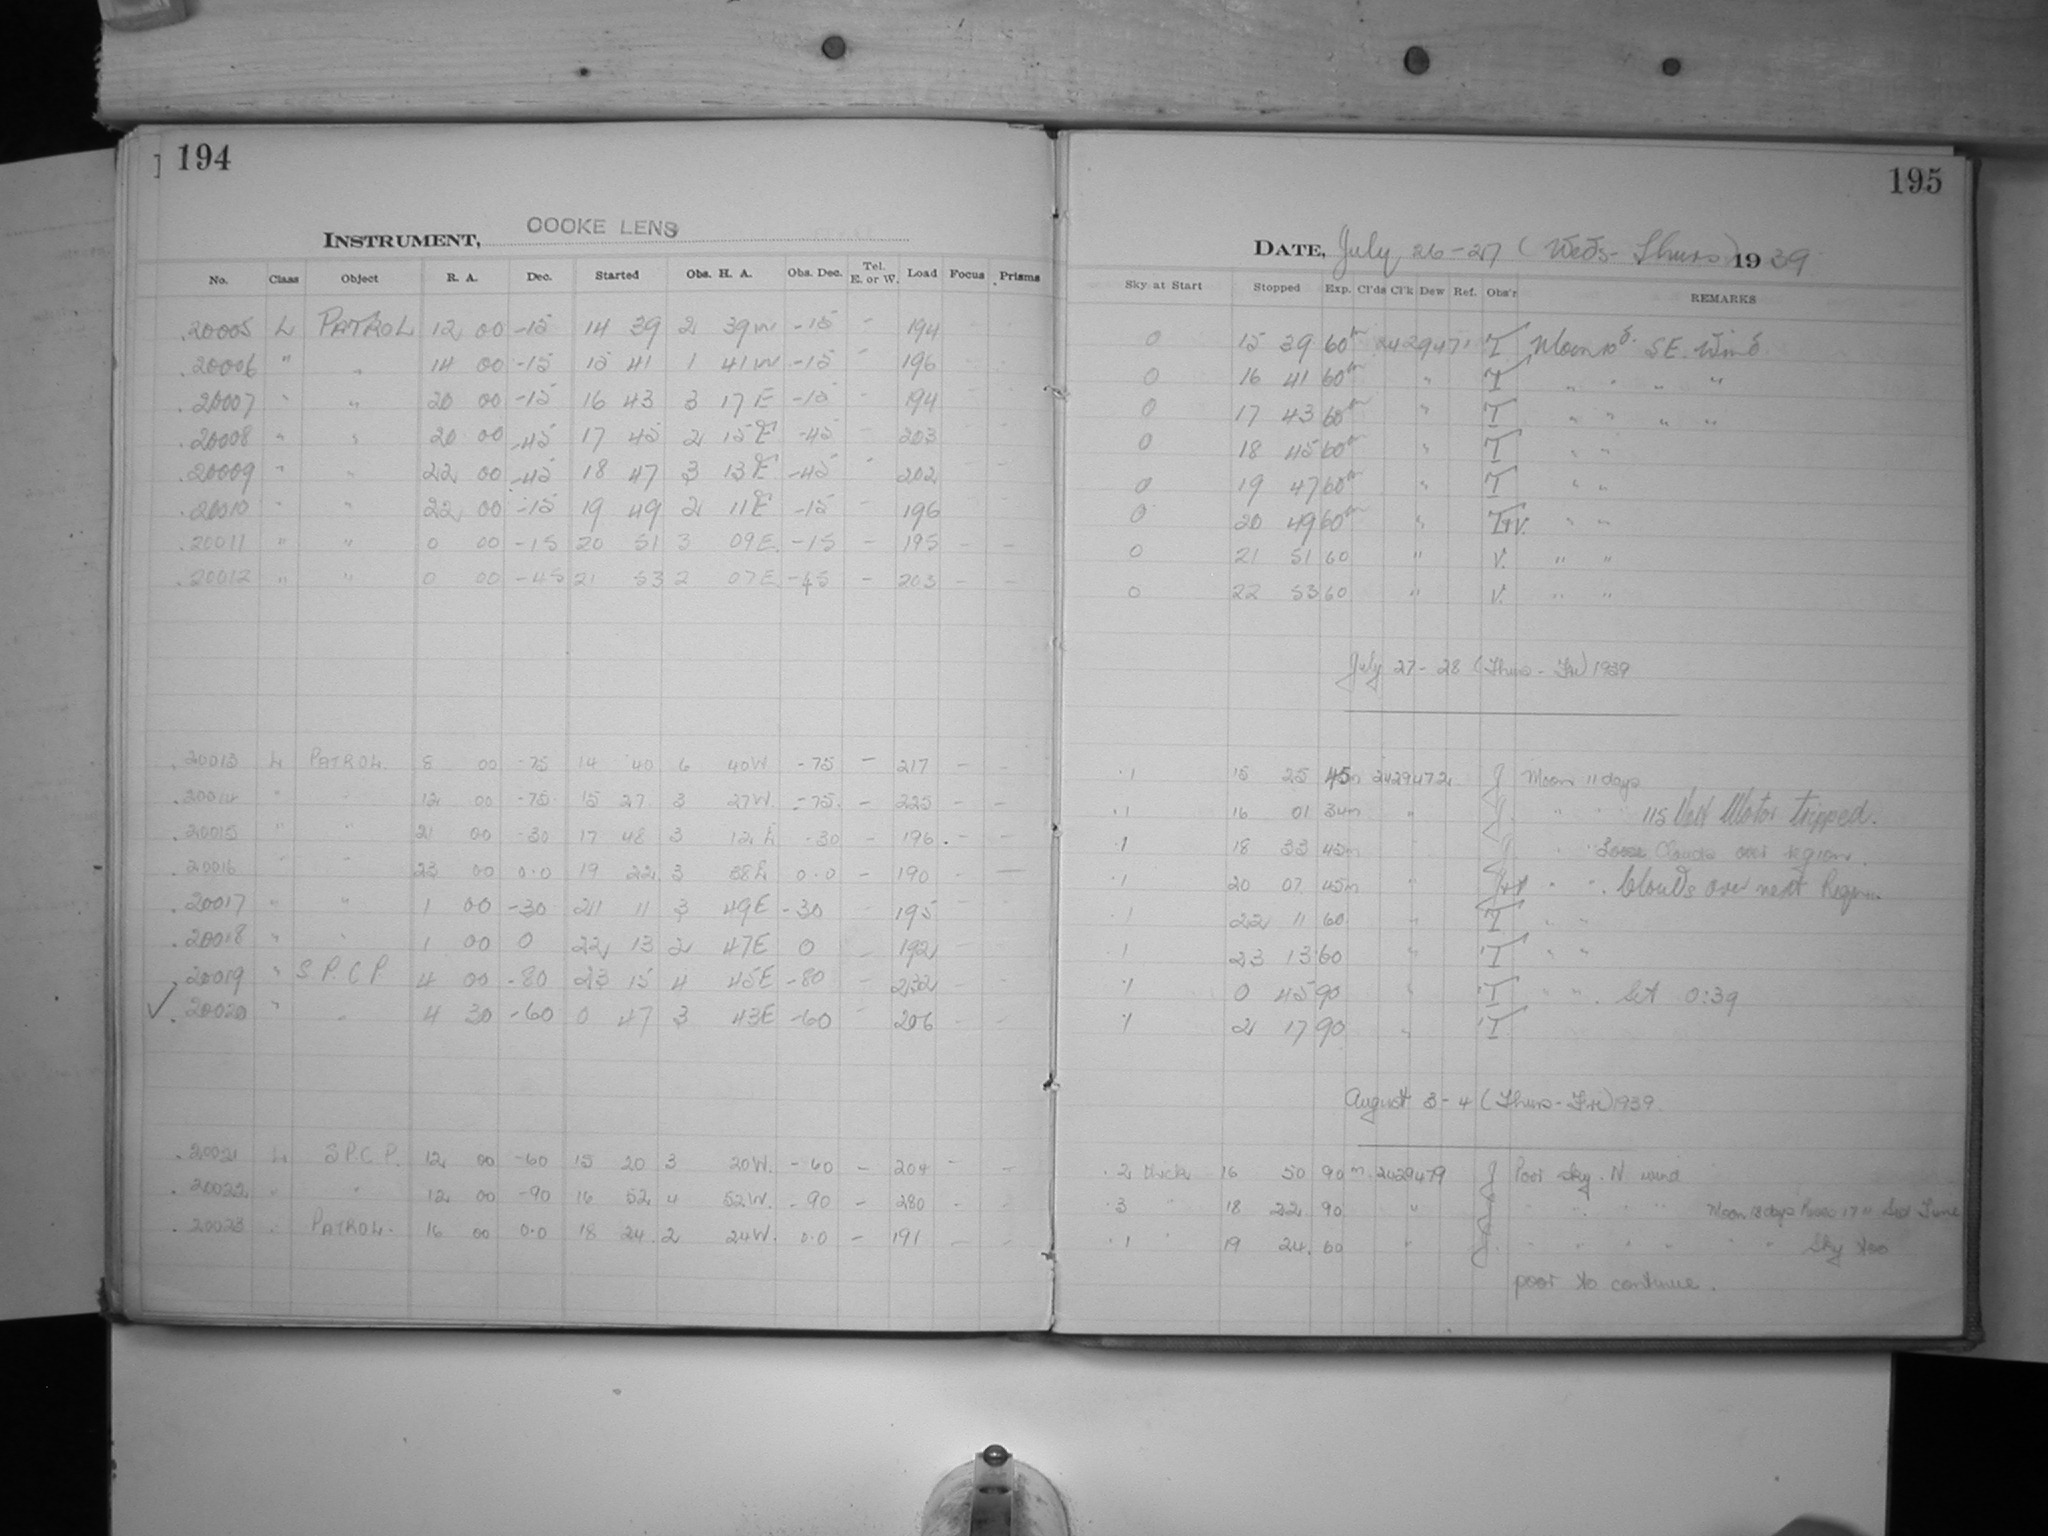 194
INSTRUMENT, COOKE LENS
No. Class Object R. A. Dec. Started Obs. H. A. Obs. Dec. Tel. E. or W. Load Focus Prisms
20005 L PATROL 12 00 -15 14 39 2 39W -15 - 194
20006 " " 14 00 -15 15 41 1 41W -15 - 196
20007 " " 20 00 -15 16 43 3 17E -15 - 194
20008 " " 20 00 -45 17 45 2 15E -45 - 203
20009 " " 22 00 -45 18 47 3 13E -45 - 202
20010 " " 22 00 -15 19 49 2 11E -15 - 196
20011 " " 0 00 -15 20 51 3 09E -15 - 195 - -
20012 " " 0 00 -45 21 53 2 07E -45 - 203 - -
20013 L PATROL. 8 00 -75 14 40 6 40W -75 - 217 - -
20014 " " 12 00 -75 15 27 3 27W. -75 - 225 - -
20015 " " 21 00 -30 17 48 3 12E -30 - 196 - -
20016 " " 23 00 0.0 19 22 3 38E 0.0 - 190 - -
20017 " " 1 00 -30 21 11 3 49E -30 - 195 - -
20018 " " 1 00 0 22 13 2 47E 0 - 192 - -
20019 " S.P.C.P. 4 00 -80 23 15 4 45E -80 - 232 - -
✓ 20020 " " 4 30 -60 0 47 3 43E -60 - 206 - -
20021 L S.P.C.P. 12 00 -60 15 20 3 20W. -60 - 204 - -
20022 " " 12 00 -90 16 52 4 52W. -90 - 280 - -
20023 " PATROL. 16 00 0.0 18 24 2 24W. 0.0 - 191 - -
195
DATE, July 26-27 (Weds-Thurs) 1939
Sky at Start Stopped Exp. Cl'ds Cl'k Dew Ref. Obs'r REMARKS
0 15 39 60m 2429471 T Moon 10d. SE. Wind.
0 16 41 60m " T " " " "
0 17 43 60m " T " " " "
0 18 45 60m " T " "
0 19 47 60m " T " "
0 20 49 60m " T+V. " "
0 21 51 60 " V. " "
0 22 53 60 " V. " "
July 27-28 (Thurs-Fri) 1939
.1 15 25 45m 2429472 J Moon 11 days
.1 16 01 34m " J " " 115 Volt Motor tripped.
.1 18 33 45m " J " " Clouds over region.
.1 20 07 45m " " " . Clouds over next Region.
.1 22 11 60 " T " "
.1 23 13 60 " T " "
.1 0 45 90 " T " " . Set 0:39
.1 2 17 90 " T
August 3-4 (Thurs-Fri) 1939.
.2 thick 16 50 90m. 2429479 J Poor sky. N wind
.3 " 18 22 90 " J " " " " Moon 18 days Rises 17 " Sid Time
.1 " 19 24 60 " J " " " " " " Sky too
poor to continue.